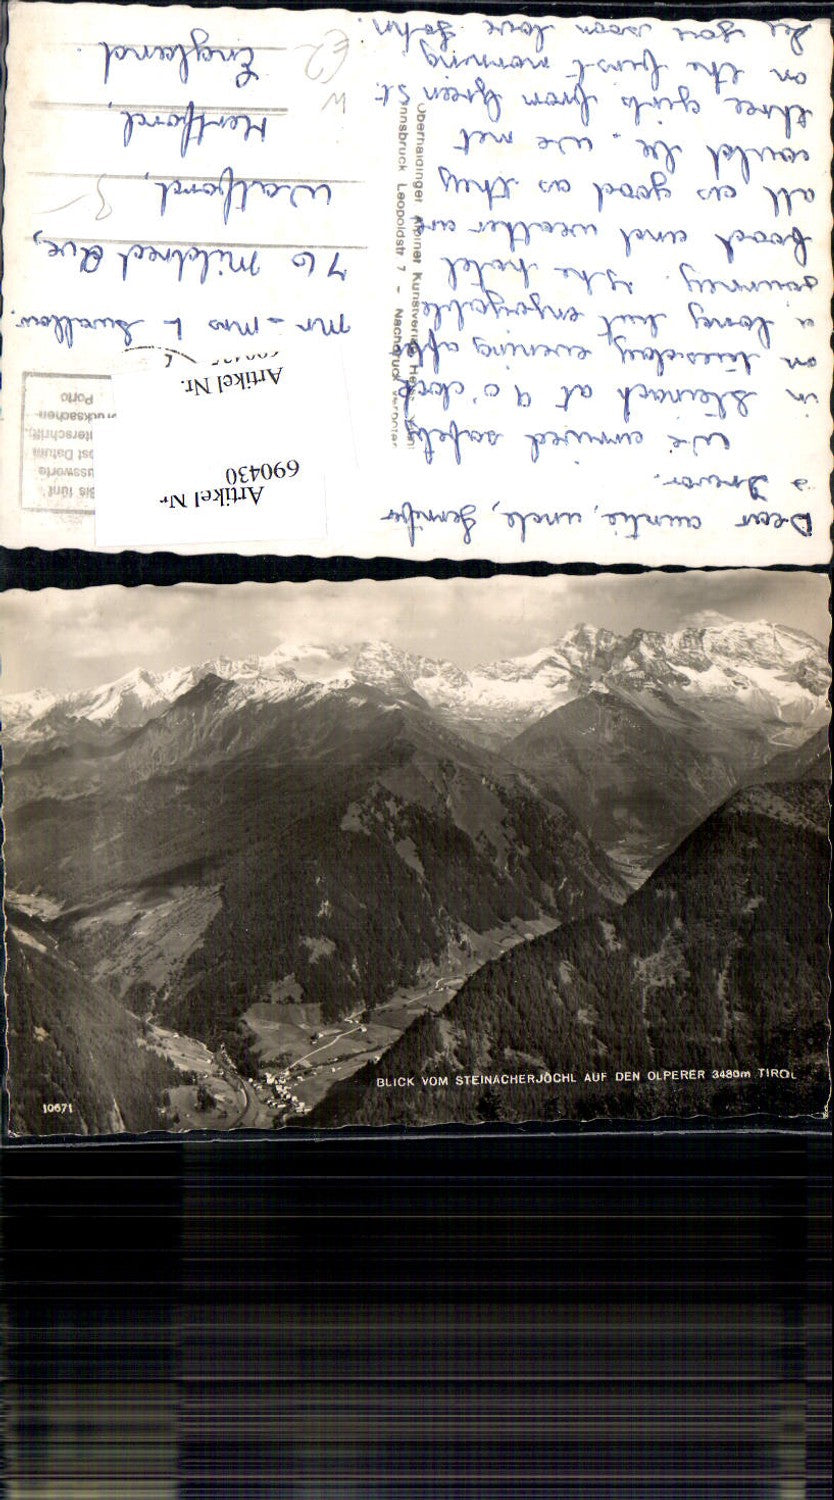 Dear auntie, uncle, Jennifer
& Trevor.
We arrived safely
in Steinach at 9 o'clock
on Tuesday evening after
a long but enjoyable
journey. The hotel
food and weather are
all as good as they
could be. We met
three girls from Green St.
on the first morning.
See you soon love John.
Mr - Mrs L Swallow.
76 Mildred Ave,
Watford,
Hertford,
England.
Artikel Nr.
690430
Artikel Nr.
Bis fünf
Porto
Innsbruck Leopoldstr 7 - Nachdruck verboten
BLICK VOM STEINACHERJÖCHL AUF DEN OLPERER 3480m TIROL
10671